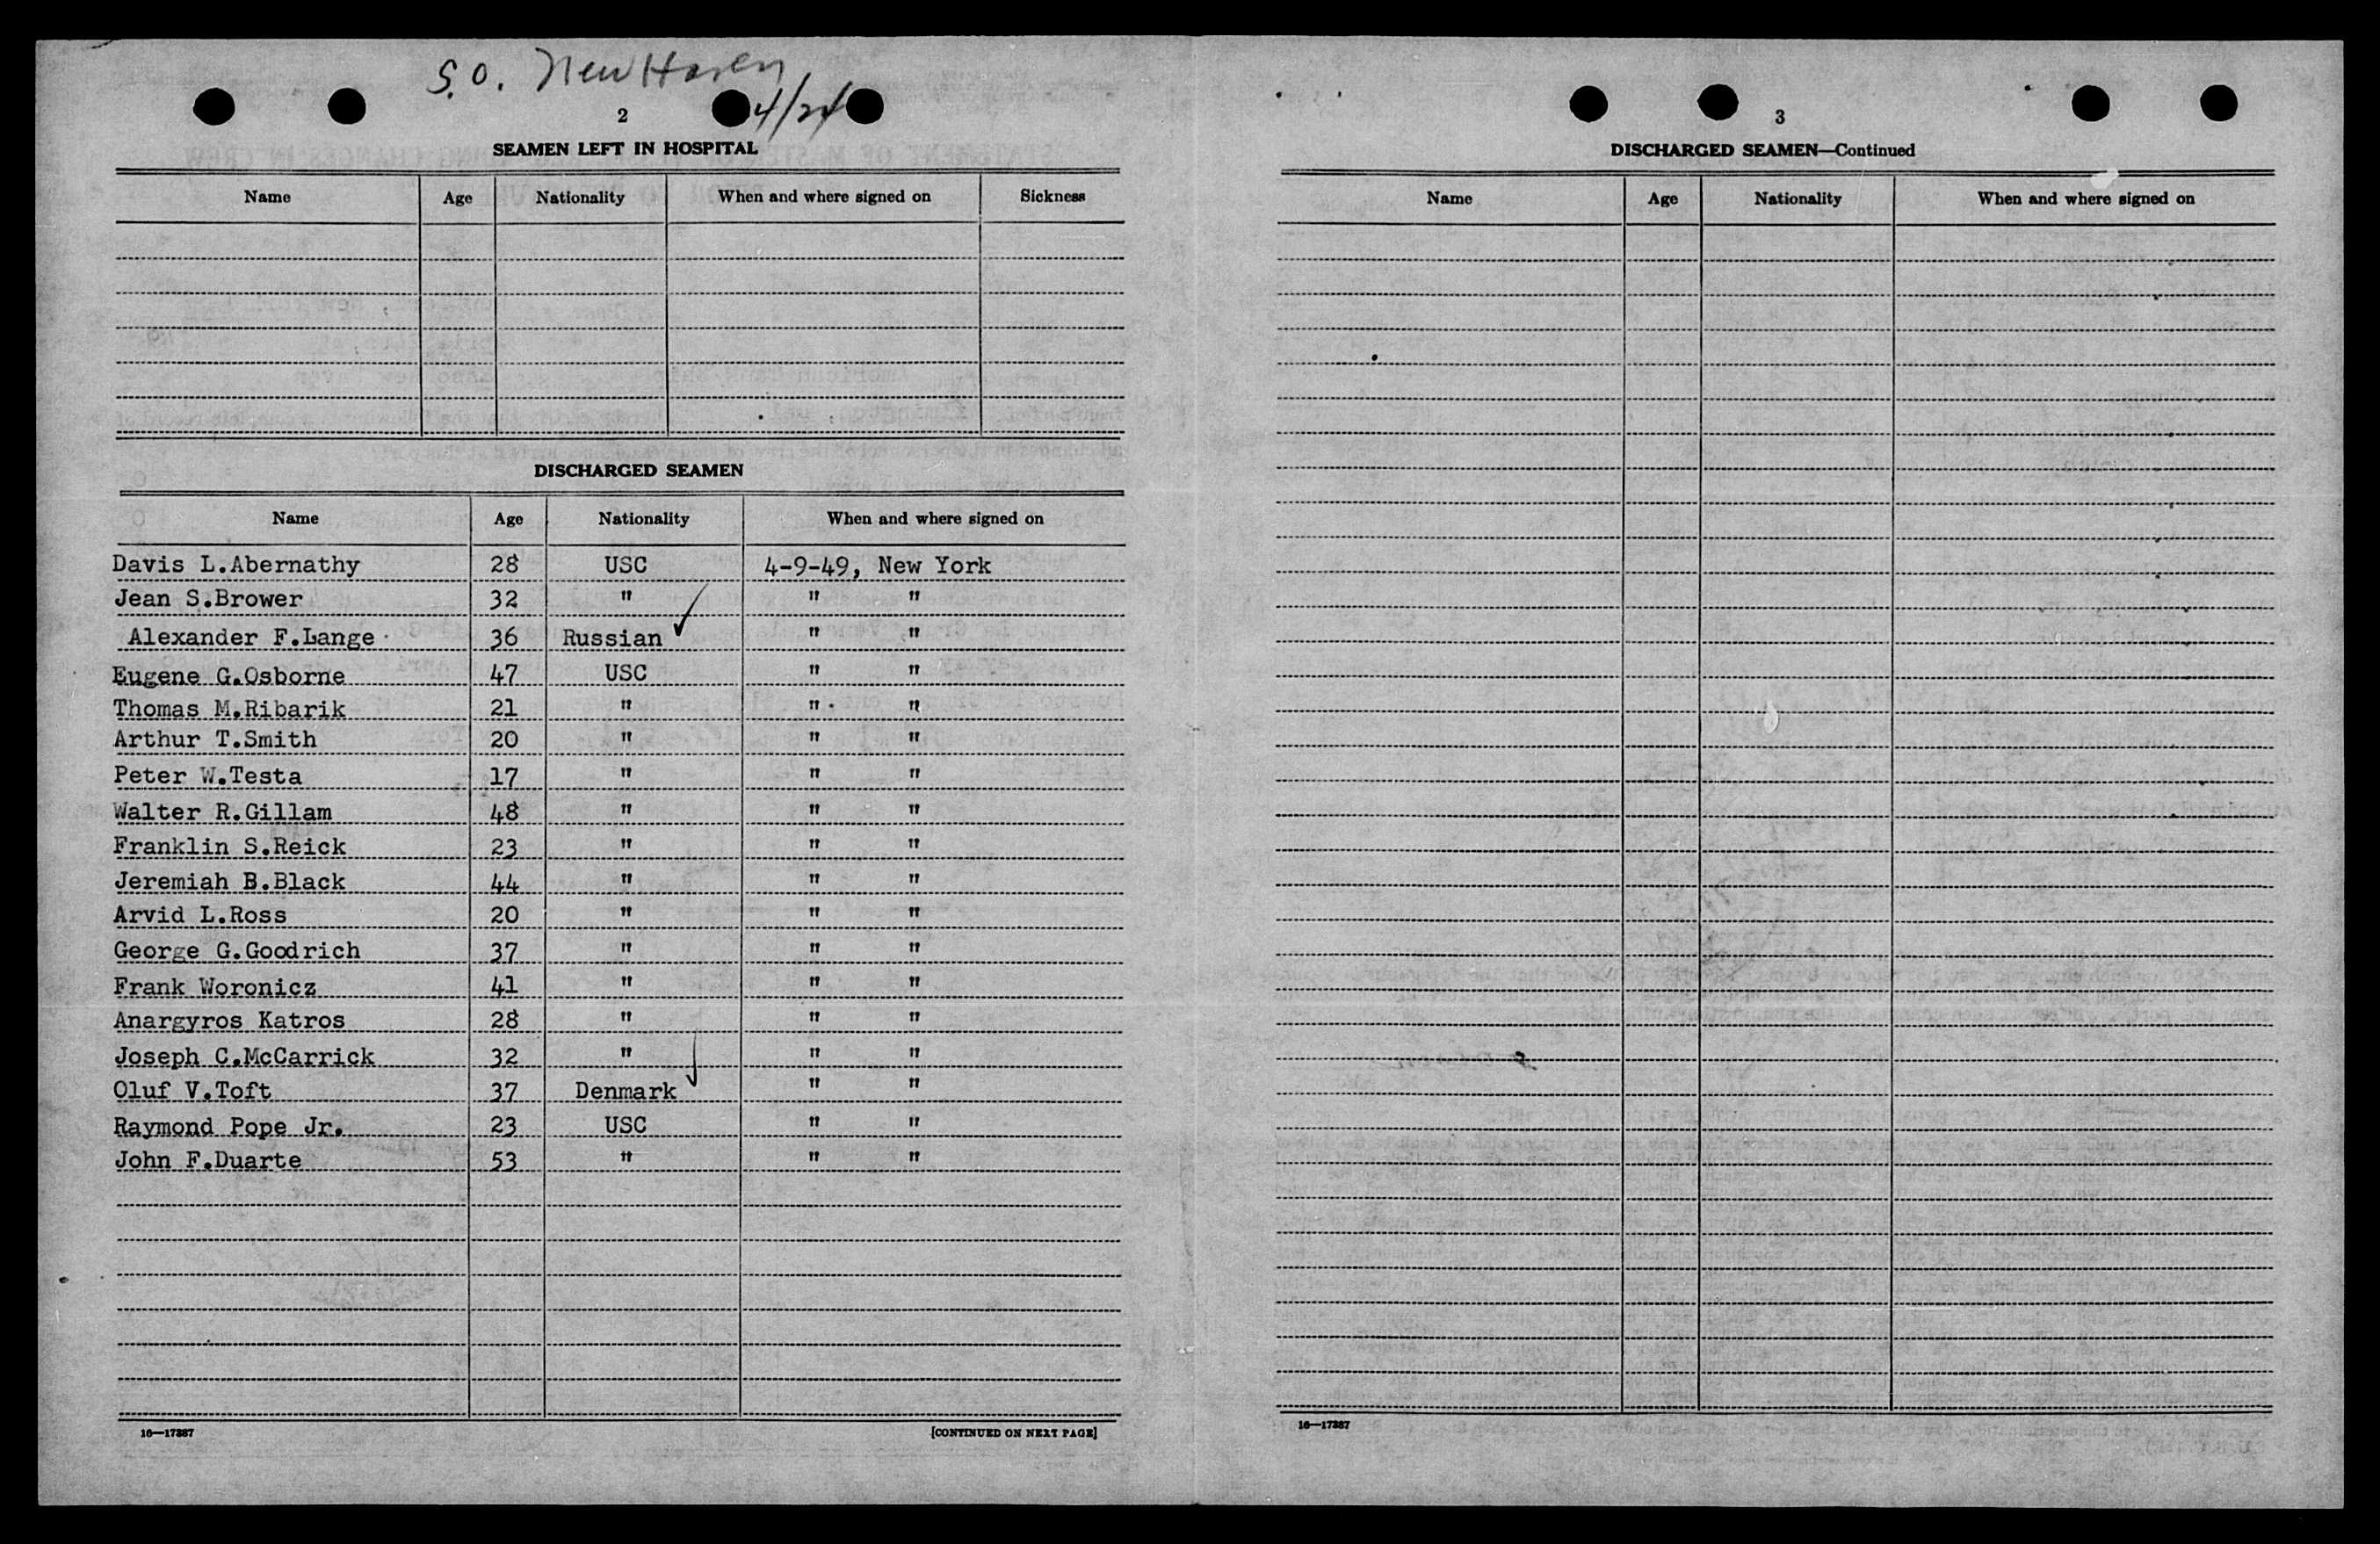 S.O. New Haven
4/24
2
SEAMEN LEFT IN HOSPITAL
Name Age Nationality When and where signed on Sickness
DISCHARGED SEAMEN
Name Age Nationality When and where signed on
Davis L.Abernathy 28 USC 4-9-49, New York
Jean S.Brower 32 " " "
Alexander F.Lange 36 Russian ✓ " "
Eugene G.Osborne 47 USC " "
Thomas M.Ribarik 21 " " "
Arthur T.Smith 20 " " "
Peter W.Testa 17 " " "
Walter R.Gillam 48 " " "
Franklin S.Reick 23 " " "
Jeremiah B.Black 44 " " "
Arvid L.Ross 20 " " "
George G.Goodrich 37 " " "
Frank Woronicz 41 " " "
Anargyros Katros 28 " " "
Joseph C.McCarrick 32 " " "
Oluf V.Toft 37 Denmark ✓ " "
Raymond Pope Jr. 23 USC " "
John F.Duarte 53 " " "
16—17387 [CONTINUED ON NEXT PAGE]
3
DISCHARGED SEAMEN—Continued
Name Age Nationality When and where signed on
16—17387